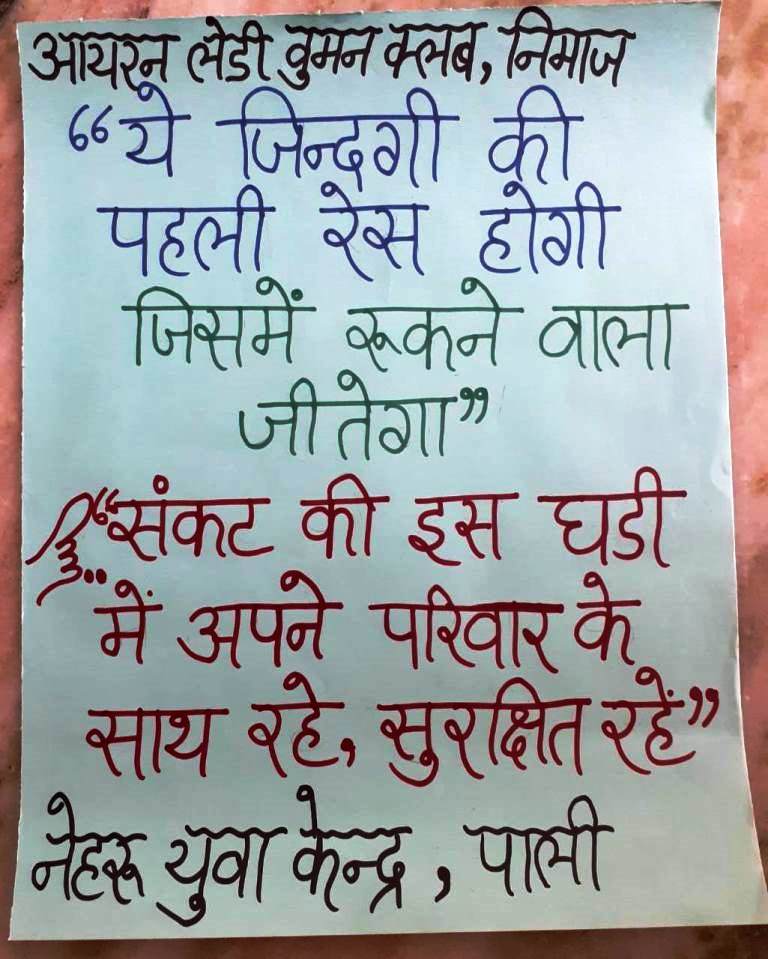 आयरन लेडी वुमन क्लब, निमाज
“ये जिन्दगी की
पहली रेस होगी
जिसमें रूकने वाला
जीतेगा”
“संकट की इस घडी
में अपने परिवार के
साथ रहे, सुरक्षित रहें”
नेहरू युवा केन्द्र, पाली